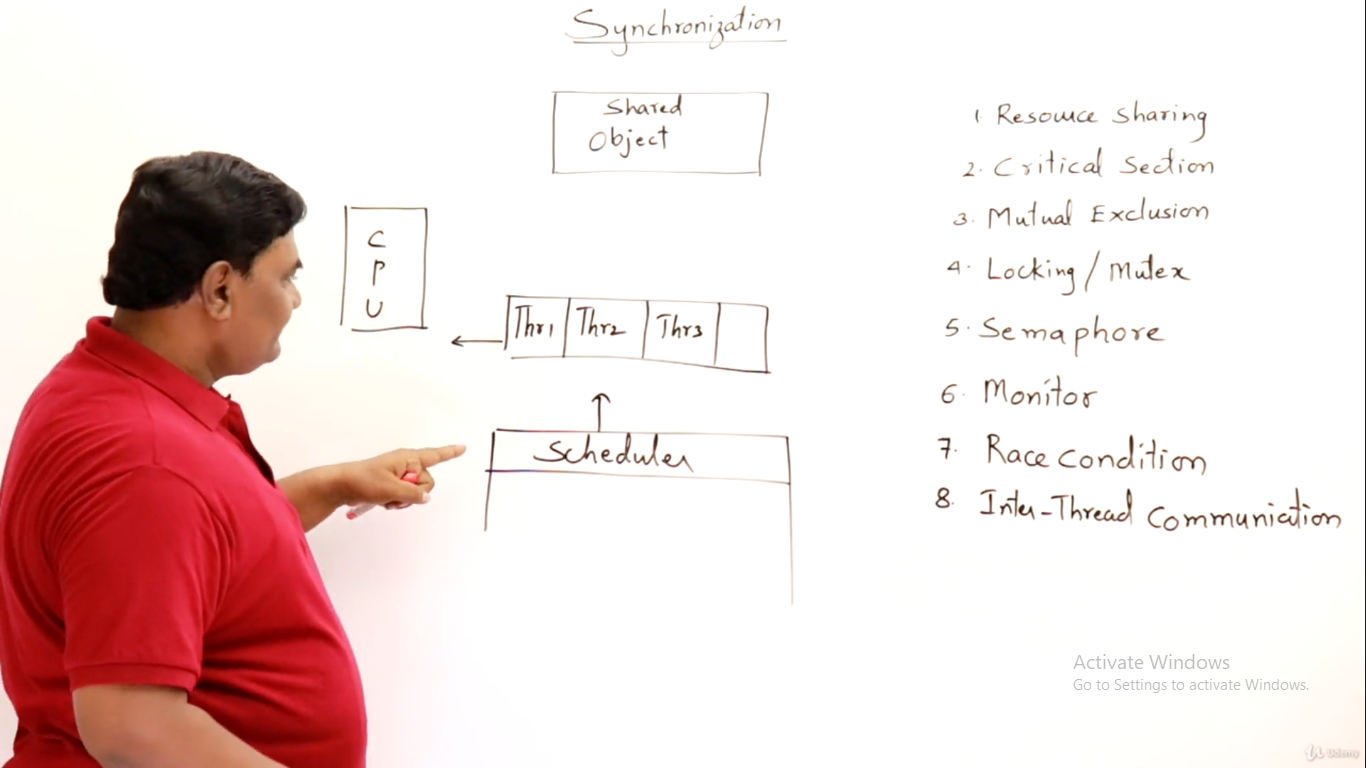 Synchronization
Shared
Object
C
P
U
Thr1 Thr2 Thr3
Scheduler
1. Resource Sharing
2. Critical Section
3. Mutual Exclusion
4. Locking / Mutex
5. Semaphore
6. Monitor
7. Race condition
8. Inter-Thread Communication
Activate Windows
Go to Settings to activate Windows.
Udemy